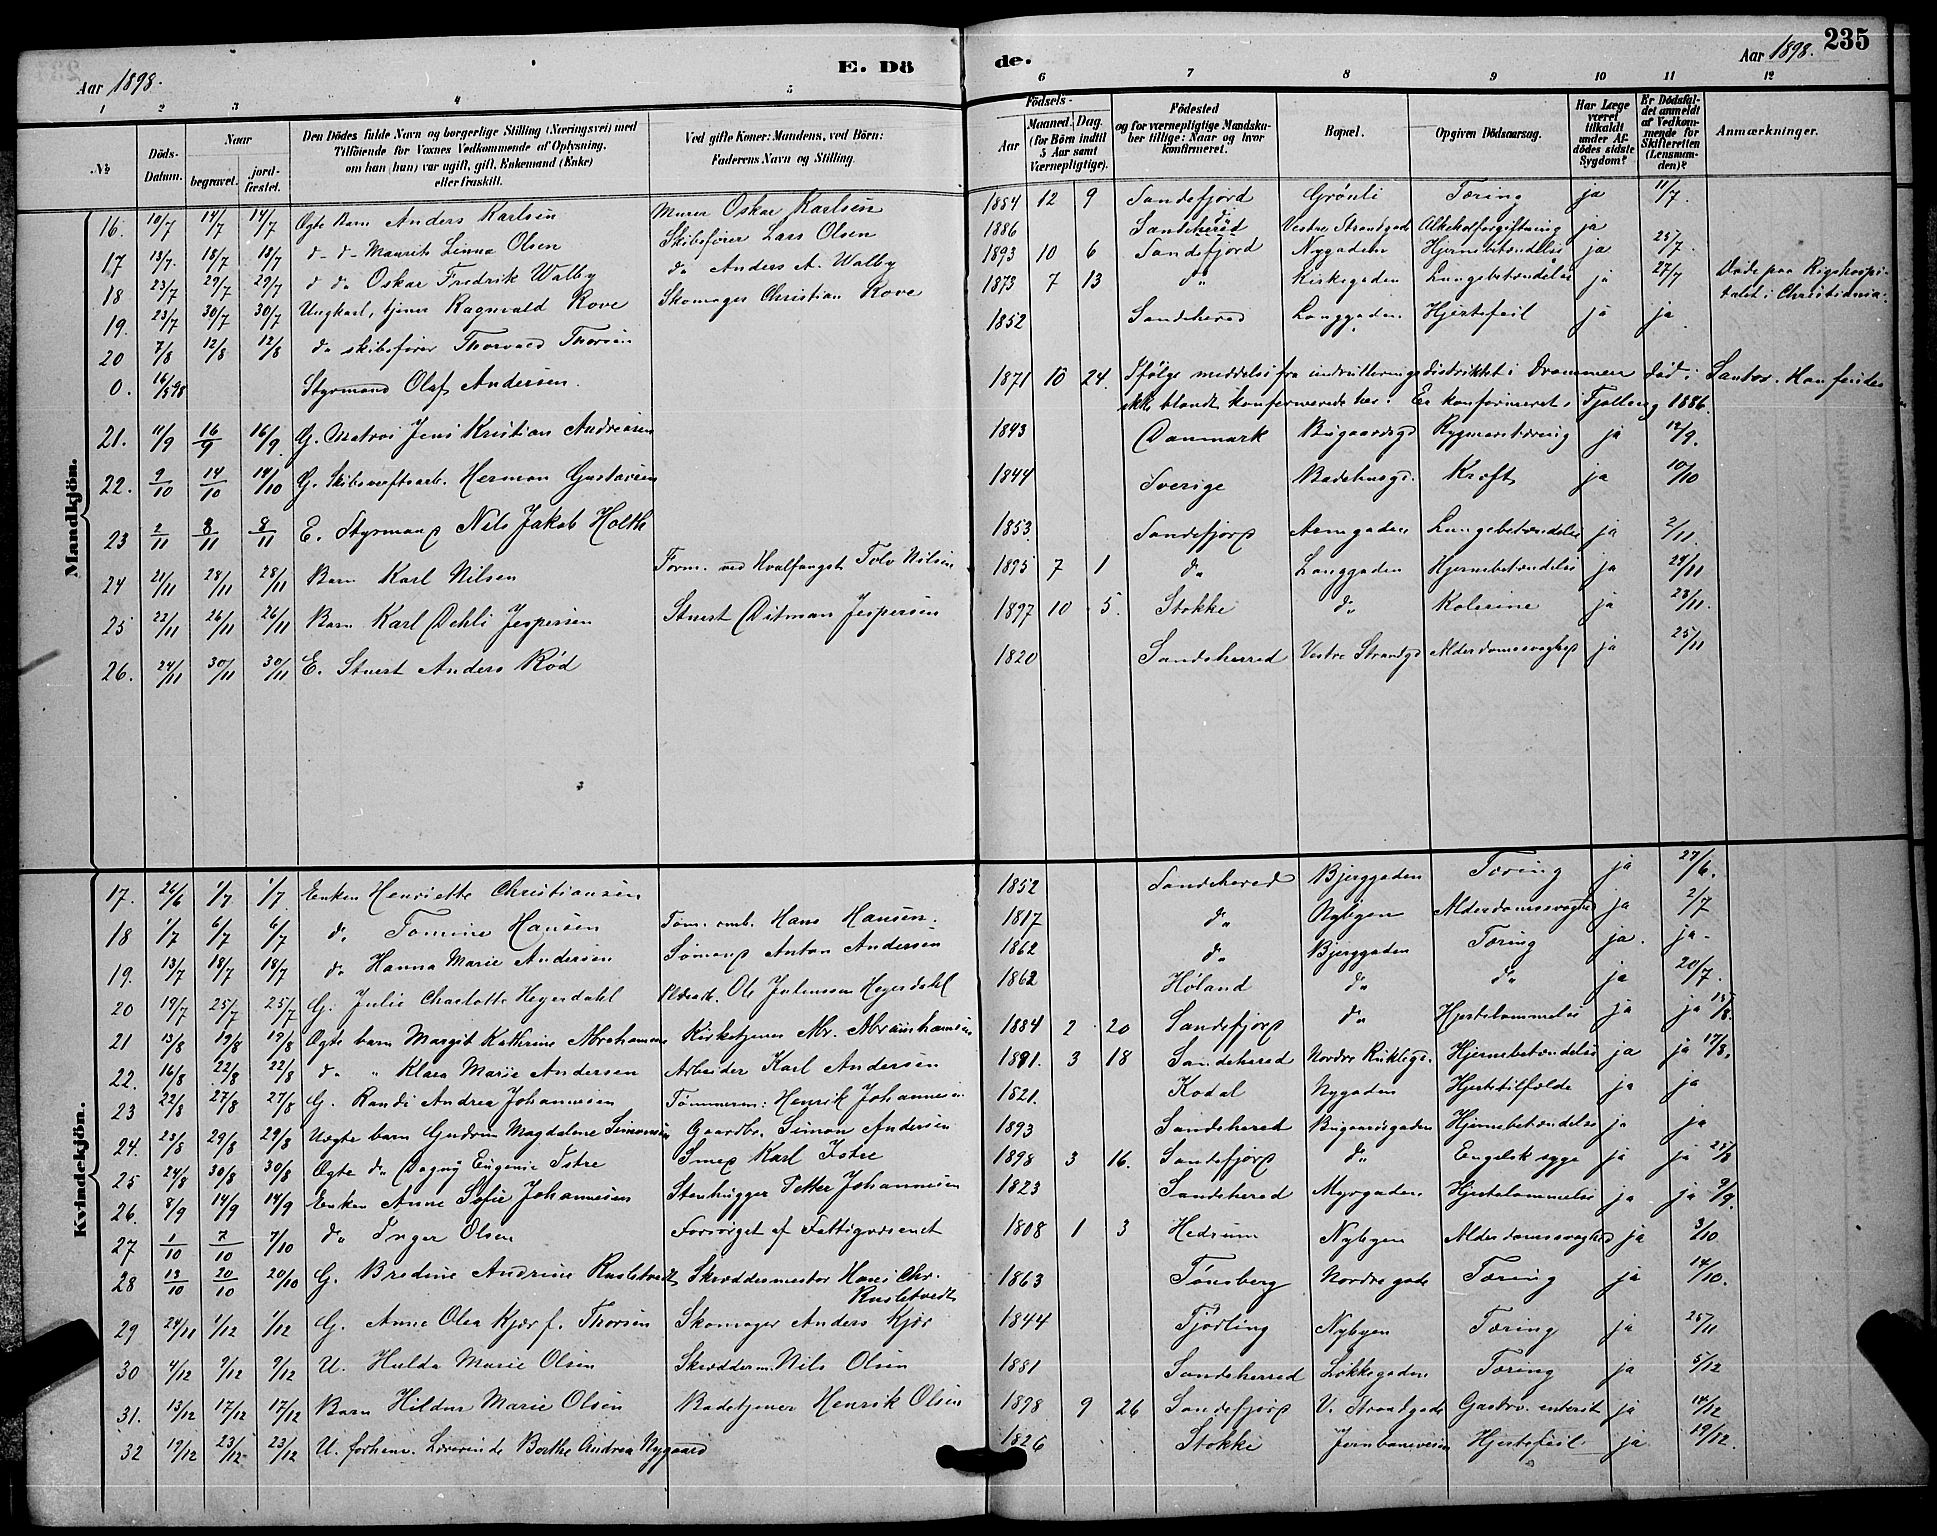 Aar 1898.
E. Dö
de.
Aar 1898.
235
1 2 3 4 5 6 7 8 9 10 11 12
№
Döds-Datum.
Naar
begravet.
jord-fæstet.
Den Dödes fulde Navn og borgerlige Stilling (Næringsvei) med
Tilföiende for Voxnes Vedkommende af Oplysning,
om han (hun) var ugift, gift, Enkemand (Enke)
eller fraskilt.
Ved gifte Koner: Mandens, ved Börn:
Faderens Navn og Stilling.
Födsels-
Aar
Maaned. Dag.
(for Börn indtil
5 Aar samt
Værnepligtige).
Födested
og for værnepligtige Mandska-
ber tillige: Naar og hvor
konfirmeret.
Bopæl.
Opgiven Dödsaarsag.
Har Læge
været
tilkaldt
under Af-
dödes sidste
Sygdom?
Er Dödsfal-
det anmeldt
af Vedkom-
mende for
Skifteretten
(Lensman-
den)?
Anmærkninger.
Mandkjön.
16. 10/7 14/7 14/7 Ægte Barn Anders Karlsen Murer Oskar Karlsen 1854 12 9 Sandefjord Grönli Tæring ja 11/7
17 13/7. 18/7 18/7 d- d- Maurits Linna Olsen Skibsfører Lars Olsen 1886 Sandeherød Vestre Strandgade Alkoholforgiftning ja
18 23/7 29/7 29/7 do do Oskar Fredrik Walby do Anders A. Walby 1893 10 6 Sandefjord Nygaden Hjernebetændelse ja 25/7.
19. 23/7 30/7 30/7 Ungkarl, tjener Ragnvald Rove Skomager Christian Rove 1873 7 13 do Kirkegaden Lungebetændelse ja 27/7 Døde paa Rigshospi-
talet i Christiania.
20 7/8 12/8 12/8 do skibsfører Thorvald Thorsen 1852 Sandeherred Langgaden Hjertefeil ja ja
0. 16/5 98 Styrmand Olaf Andersen. 1871 10 24. Ifølge meddelse fra indrulleringsdistriktet i Drammen død i Santos. Han findes
ikke blandt konfirmerede her. Er konfirmeret i Tjølling 1886.
21. 11/9 16/9 16/9. G. Matros Jens Kristian Andreasen 1843 Danmark Bugaardsgd Rygmarvstæring ja 12/9.
22. 9/10 14/10 14/10 G. Skibsværftsarb. Herman Gustavsen 1844 Sverige Badehusgd. Kræft ja 10/10
23 2/11 8/11 8/11 E. Styrmand Nils Jakob Holth 1853. Sandefjord Aasgaden Lungebetændelse ja 2/11.
24 21/11 28/11 28/11 Barn Karl Nilsen Form. ved Hvalfangst Tolv Nilsen 1895 7 1 do Langgaden Hjernebetændelse ja 24/11
25 22/11 26/11 26/11 Barn Karl Dehli Jespersen Stuert Ditman Jespersen 1897 10 5. Stokke do Kolerine ja 23/11.
26. 24/11 30/11 30/11 E. Stuert Anders Rød 1820 Sandeherred Vestre Strandgd Alderdomssvaghed ja 25/11
Kvindekjön.
17. 26/6 1/7 1/7 Enken Henriette Christiansen 1852 Sandeherred Bjerggaden Tæring ja 27/6.
18 1/7 6/7 6/7 do Tomine Hansen Tøm. omb. Hans Hansen. 1817 do Nybyen Alderdomssvaghed ja 2/7
19. 13/7 18/7 18/7 do Hanna Marie Andersen Sømand Anton Andersen 1862 do Bjerggaden Tæring ja. ja-
20 19/7 25/7 25/7 G. Julie Charlotte Heyerdahl Ole Johnssen Heyerdahl 1862 Høland do do ja 20/7.
21 13/8 19/8 19/8 Ægte barn Margit Kathrine Abrahamsen Kirketjener Abr. Abrahamsen 1884 2 20 Sandefjord do Hjertelammelse ja ja 15/8.
22. 16/8 22/8 22/8 do " Klara Marie Andersen Arbeider Karl Andersen 1891. 3 18 Sandeherred Nordre Hjernebetændelse ja ja 17/8.
23 22/8 27/8 27/8 G. Randi Andrea Johannesen Tømmerm: Henrik Johannesen 1821. Kodal Nygaden Hjertetilfælde ja ja
24. 23/8 29/8 29/8 Uægte barn Gudrun Magdalene Simonsen Gaardbr. Simon Andersen 1893 Sandeherred Bugaardsgaden Hjernebetændelse ja ja
25 24/8 30/8 30/8 Ægte do Dagny Eugenie Istre Smed Karl Istre 1898 3 16. Sandefjord do Engelsk syge ja ja 25/8
26. 8/9 14/9 14/9 Enken Anne Sofie Johannesen Stenhugger Petter Johannesen 1823 Sandeherred Myrgaden Hjertelammelse ja ja 9/9.
27 1/10 7/10 7/10 do Inger Olsen Forsørget af Fattigvæsenet 1808 1 3 Hedrum Nybyen Alderdomssvaghed ja 3/10
28 13/10 20/10 20/10 G. Bredine Andrine Rusletvedt Skræddermester Hans Chr.
Rusletvedt 1863 Tønsberg Nordregade Tæring ja 14/10.
29 24/11 1/12 1/12 G. Anne Olea Kjær f. Thorsen Skomager Anders Kjær 1844 Tjølling Nybyen Tæring ja 25/11
30 4/12 9/12 9/12 U. Hulda Marie Olsen Skrædderm. Nils Olsen 1881 Sandeherred Løkkegaden Tæring ja 5/12
31. 13/12 17/12 17/12 Barn Hildur Marie Olsen Badetjener Henrik Olsen 1898 9 26 Sandefjord V. Strandgade Gastro. enterit ja 14/12
32 19/12 23/12 23/12 U. forhenv. Lærerinde Berthe Andrea Nygaard 1826 Stokke Jernbaneveien Hjertefeil ja 19/12.